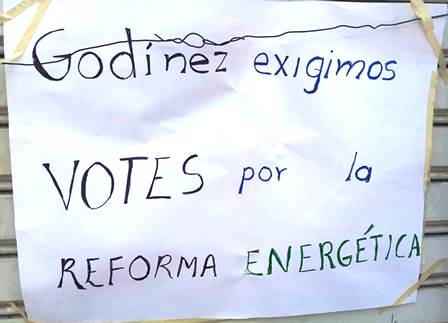 Godínez exigimos
VOTES por la
REFORMA ENERGÉTICA